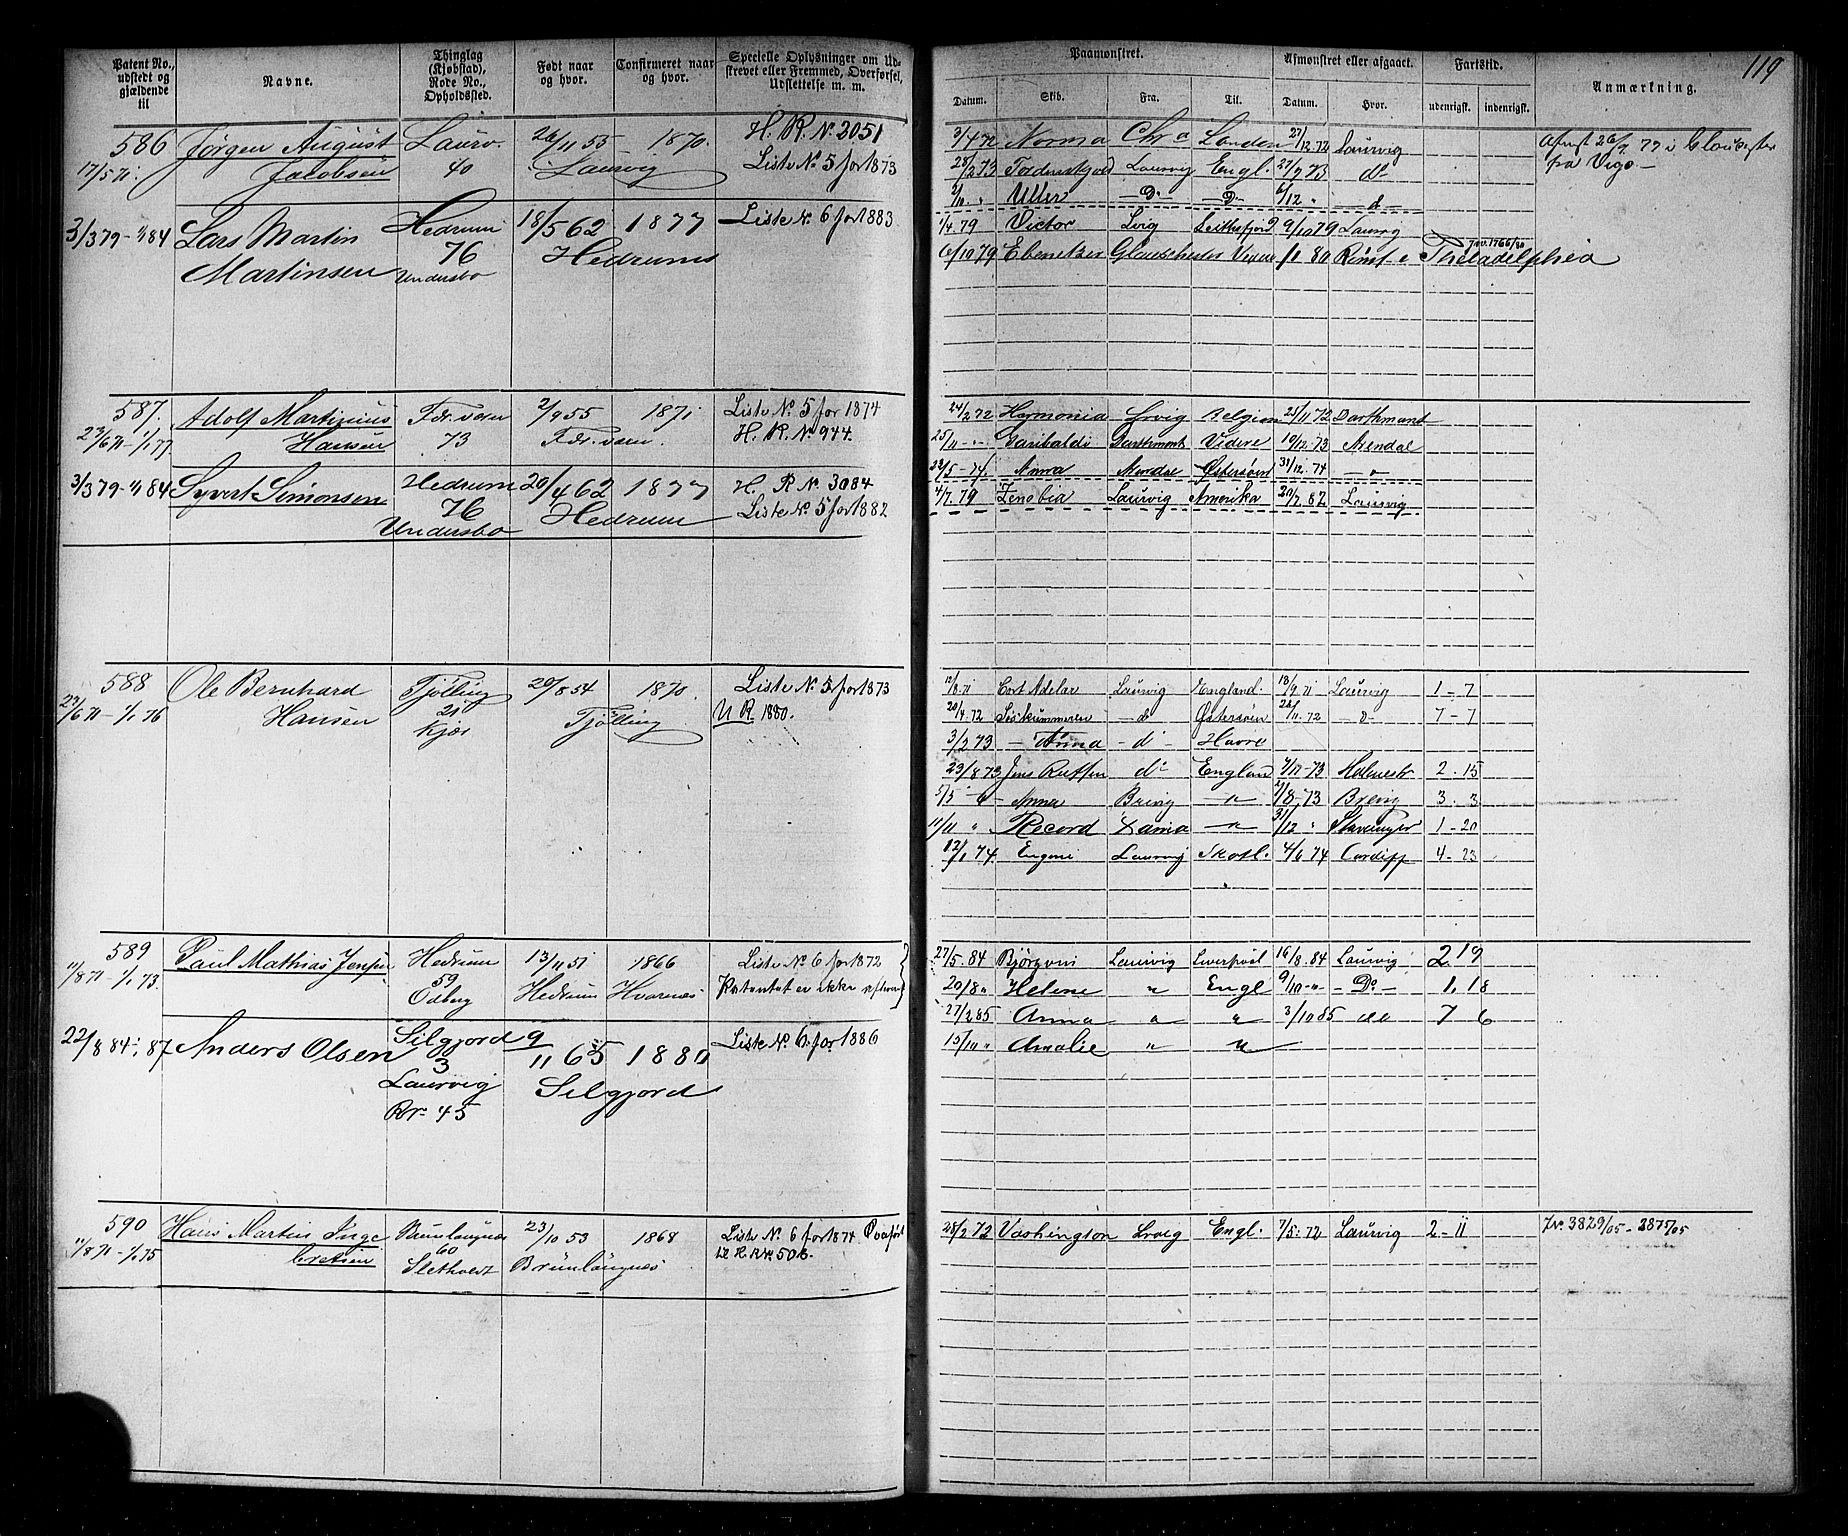 119
Patent No., udstedt og gjældende til
Navne.
Thinglag (Kjøbstad), Rode No., Opholdssted.
Født naar og hvor.
Confirmeret naar og hvor.
Specielle Oplysninger om Udskrevet eller Fremmed, Overførsel, Udslettelse m. m.
Paamønstret.
Afmønstret eller afgaaet.
Fartstid.
Anmærkning.
Datum. Skib. Fra. Til. Datum. Hvor. udenrigsk. indenrigsk.
586 Jørgen August Laurv. 26/11 55 1870. H. R. N. 2051
17/5 71. Jacobsen 40 Laurvig Liste No 5 for 1873
3/4 72 Norma Chr a London 27/12.72 Laurvig
fra Vigo -
28/2 73 Tordenskjold Laurvig Engl. 27/7 73 do
Uller - Do - - Do - 6/12 " - d -
3/3 79 - 1/1 84 Lars Martin Hedrum 18/5 62 1877 Liste No 6 for 1883
Martinsen 76 Hedrum
Undersbo
1/4.79 Victor Lvig 9/10 79 Laurvig
6/10 79 Ebenetzer Rømt i Philadelphia
587. Adolf Martinius Fdr.værn 2/9 55 1871 Liste No 5 for 1874
23/6 71 - 1/1 77 Hansen 73 Fdr.værn. H. R. No 944.
24/2 72 Harmonia Lrvig Belgien 25/11 72 Darthmouth
25/11 - " - Garibaldi Darthmout Videre 19/12.73 Arendal
22/5 - 74 Anna Arendal Østersøen 31/12.74 - " -
3/3 79 - 1/1 84 Syvert Simonsen Hedrum 20/4 62 1877 H. R No 3084
76 Hedrum Liste No 5 for 1882
Undersbo
4/7.79 Zenobia Laurvig Amerika 20/7.82 Laurvig
588 Ole Bernhard Tjølling 20/8 54 1870. Liste No 5 for 1873
23/6 71 - 1/1 76 Hansen 21 Tjølling U R. 1880.
Kjær
12/8.71 Cort Adelar Laurvig England. 18/9.71 Laurvig 1 - 7
20/4.72 - d Østersøen 22/11.72 - d - 7 - 7
3/2 73 - Anna - d - Havre
23/8 73 do England 7/11 - 73 Holmestr 2 - 15
5/5 - " Anna Brevig - " 9/8.73 Brevig 3 . 3
11/11 " Record - " 31/12 " Stavanger 1 - 20
12/1 74. Eugeni Laurvig Skotl. 4/6 74 Cardiff 4 - 23
589 Paul Mathias Jensen Hedrum 13/11 51 1866 Liste No 6 for 1872
11/8 71 - 1/1 73. 59 Hedrum Hvarnæs Patentet er ikke
Odberg
27/5.84 Bjørgvin Laurvig Liverpool 16/8.84 Laurvig 2 19
20/8 " Helene " Engl 9/10 - " - - Do - 1, 18
27/2 85 Anna " " 3/10 85 do 7 6
15/10 " Amalie " "
22/8 84 - 87 Anders Olsen Silgjord 9/11 65 1880 Liste No. 6 for 1886
3 Silgjord
Laurvig
Rr. 45
590 Hans Martin Inge Brunlaugnæs 23/10 53 1868 Liste No 6 for 1874
11/8 71 - 1/1 75 bretsen 60 Brunlaugnæs
Slethoedt
28/2 72 Vashington Lrvig Engl. 7/5.72 Laurvig 2 - 11 Jno. 3829/05 - 3875/05